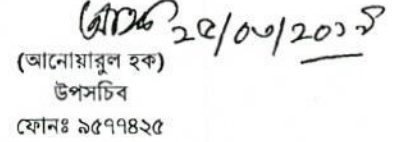 ২৫/০৩/২০১৪
(আনোয়ারুল হক)
উপসচিব
ফোনঃ ৯৫৭৭৪২৫